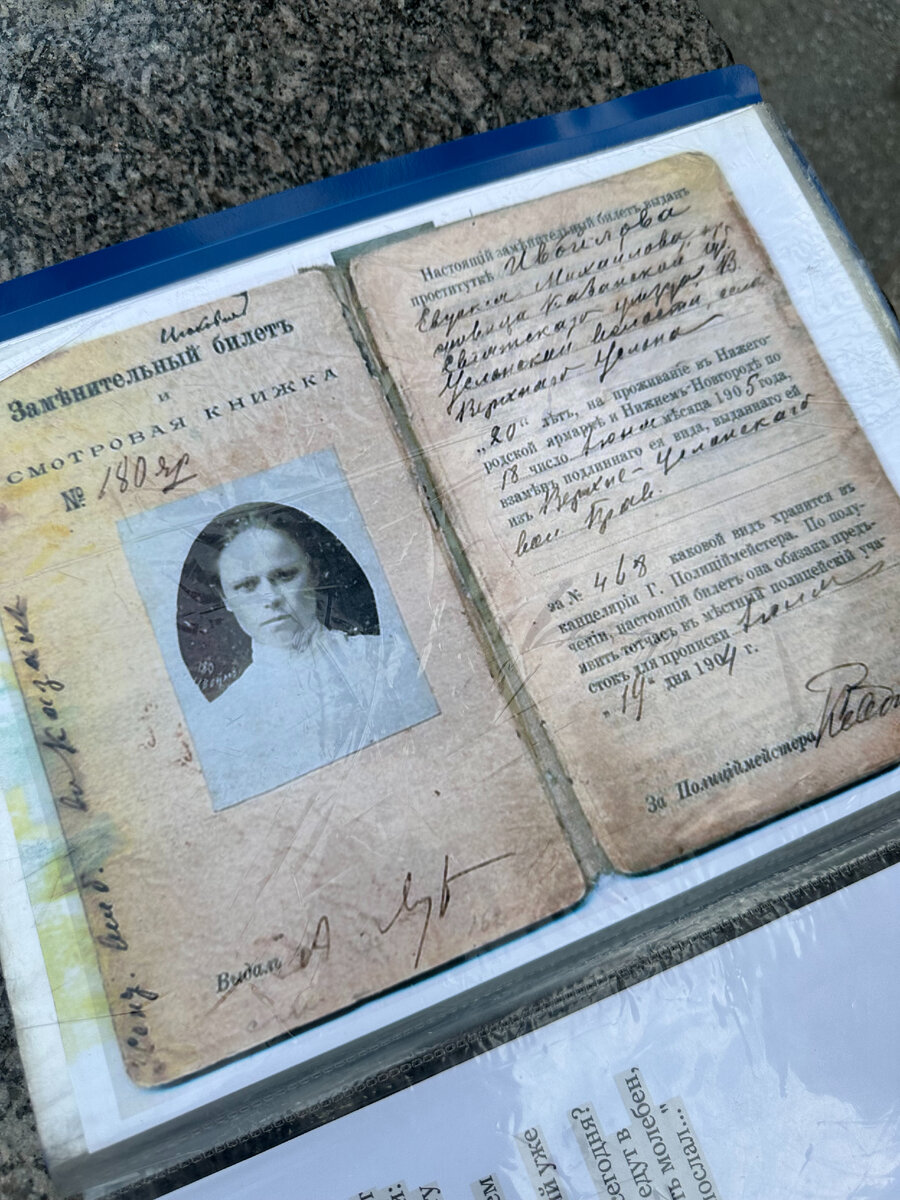 Замѣнительный билетъ
и
СМОТРОВАЯ КНИЖКА
№ 180
180
Выдалъ
Настоящій замѣнительный билетъ выданъ
проституткѣ
Евдокія Михайлова
Казанской губ
уѣзда В.
Услонской волости, села
Верхняго Услона
„20“ лѣтъ, на проживаніе въ Нижего-
родской ярмаркѣ и Нижнемъ-Новгородѣ по
18 число Іюня мѣсяца 1905 года,
взамѣнъ подлиннаго ея вида, выданнаго ей
изъ Верхне-Услонскаго
вол. Прав.
за № 468 каковой видъ хранится въ
канцеляріи Г. Полиціймейстера. По полу-
ченіи, настоящій билетъ она обязана предъ-
явить тотчасъ въ мѣстный полицейскій уча-
стокъ для прописки Іюня
„19“ дня 1904 г.
За Полиціймейстера
послал..."
ть молебен,
едут в
егодня?
й уже